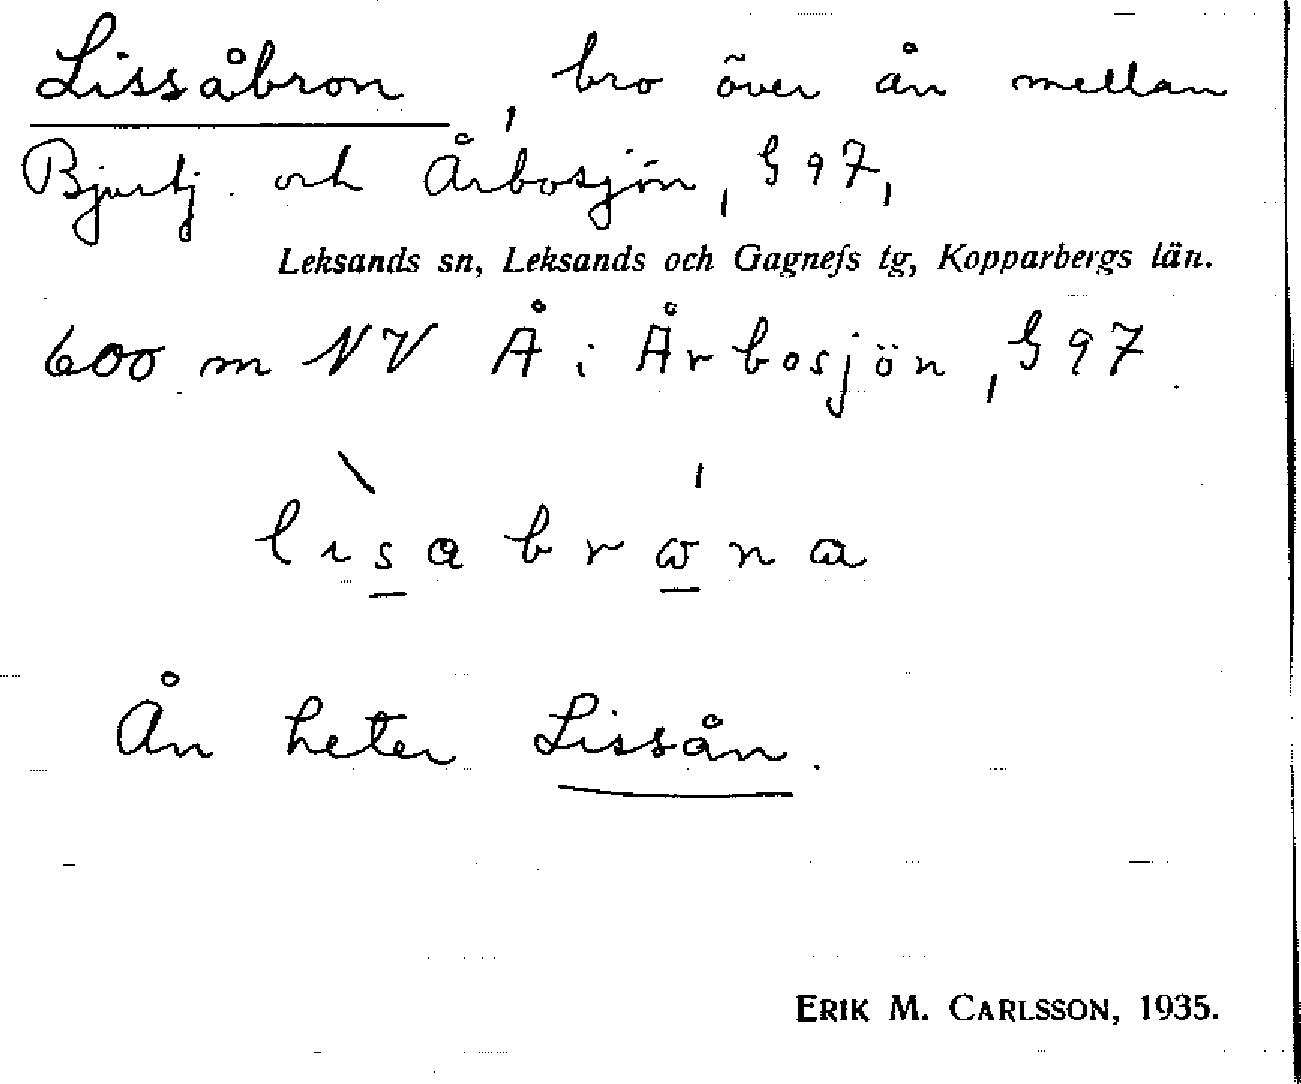 Lissåbron, bro över ån mellan
Bjurtj. och Årbosjön, G 97,
Leksands sn, Leksands och Gagnefs tg, Kopparbergs län.
600 m NV Å i Årbosjön, G 97
lisabrωna
Ån heter Lissån.
ERIK M. CARLSSON, 1935.